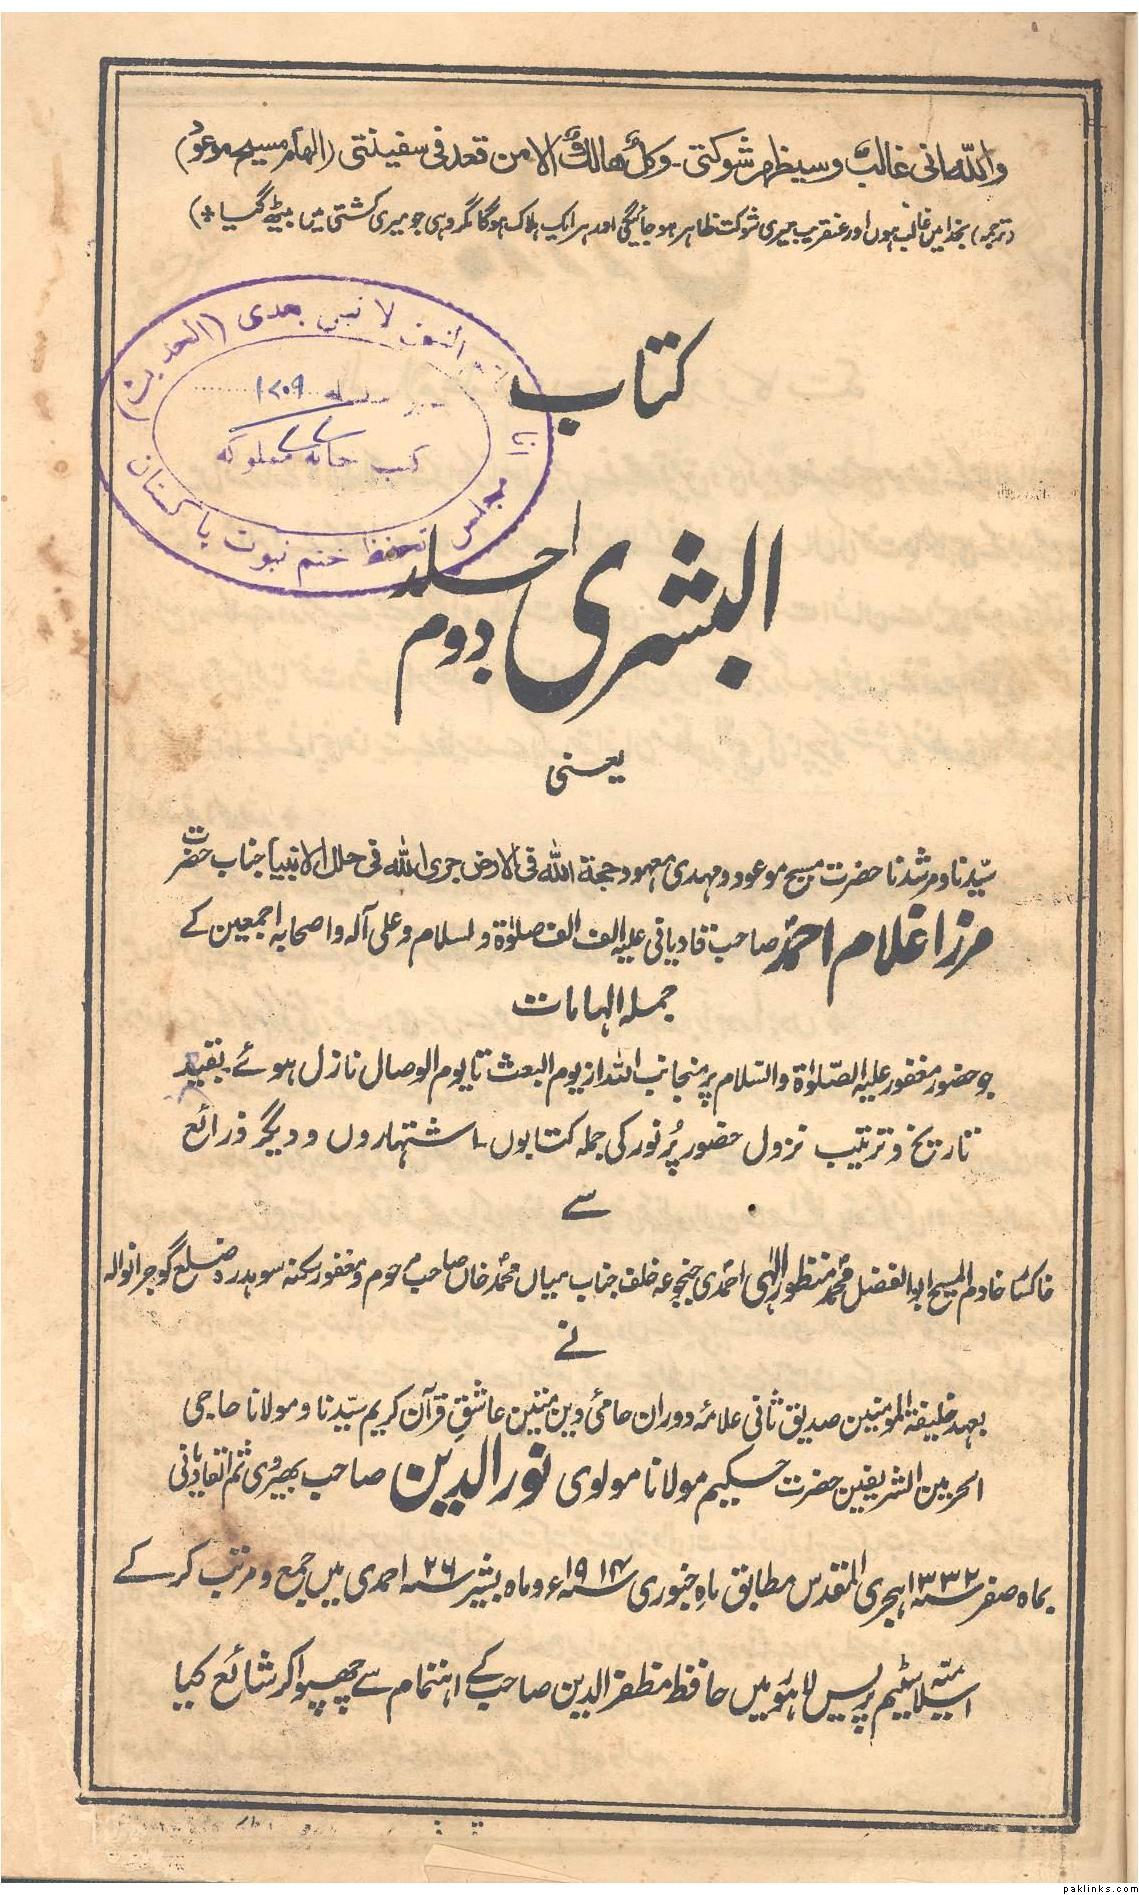 واللّٰہ انی غالبٌ وسیظهر شوکتی۔ وکلٌّ هالکٌ الا من قعد فی سفینتی (الہام مسیح موعودؑ)
(ترجمہ) بخدا میں غالب ہوں اور عنقریب میری شوکت ظاہر ہو جائیگی اور ہر ایک ہلاک ہوگا مگر وہی جو میری کشتی میں بیٹھ گیا
انا خاتم النبیین لا نبی بعدی (الحدیث)
نمبر سلسلہ ۱۷۰۹
کتب خانہ مملوکہ
مجلس تحفظ ختم نبوت پاکستان
کتاب
البشریٰ جلد
دوم
یعنی
سیّدنا و مرشدنا حضرت مسیح موعود و مہدی معہود حجۃ اللّٰہ فی الارض جری اللّٰہ فی حلل الانبیا جناب حضرت
مرزا غلام احمدؐ صاحب قادیانی علیہ الف الف صلوٰۃ والسلام و علی آلہ و اصحابہ اجمعین کے
جملہ الہامات
جو حضور مغفور علیہ الصّلوٰۃ والسّلام پر منجانب اللہ از یوم البعث تا یوم الوصال نازل ہوئے بقید
تاریخ و ترتیب نزول حضور پُرنور کی جملہ کتابوں۔ اشتہاروں و دیگر ذرائع
سے
خاکسار خادم المسیح ابوالفضل محمد منظور الٰہی احمدی جنجوعہ خلف جناب میاں محمد خان صاحب مرحوم و مغفور سکنہ سوہدرہ ضلع گوجرانوالہ
نے
بعہد خلیفۃ المومنین صدیق ثانی علامۂ دوران حامی دین متین عاشقِ قرآن کریم سیّدنا و مولانا حاجی
الحرمین الشریفین حضرت حکیم مولانا مولوی نورالدین صاحب بھیروی ثم القادیانی
بماہ صفر ۱۳۳۲؁ ہجری المقدس مطابق ماہ جنوری ۱۹۱۴؁ء و ماہ بشیر ۲۶؁ احمدی میں جمع و مرتب کر کے
اسلامیہ سٹیم پریس لاہور میں حافظ مظفر الدین صاحب کے اہتمام سے چھپوا کر شائع کیا
paklinks.com